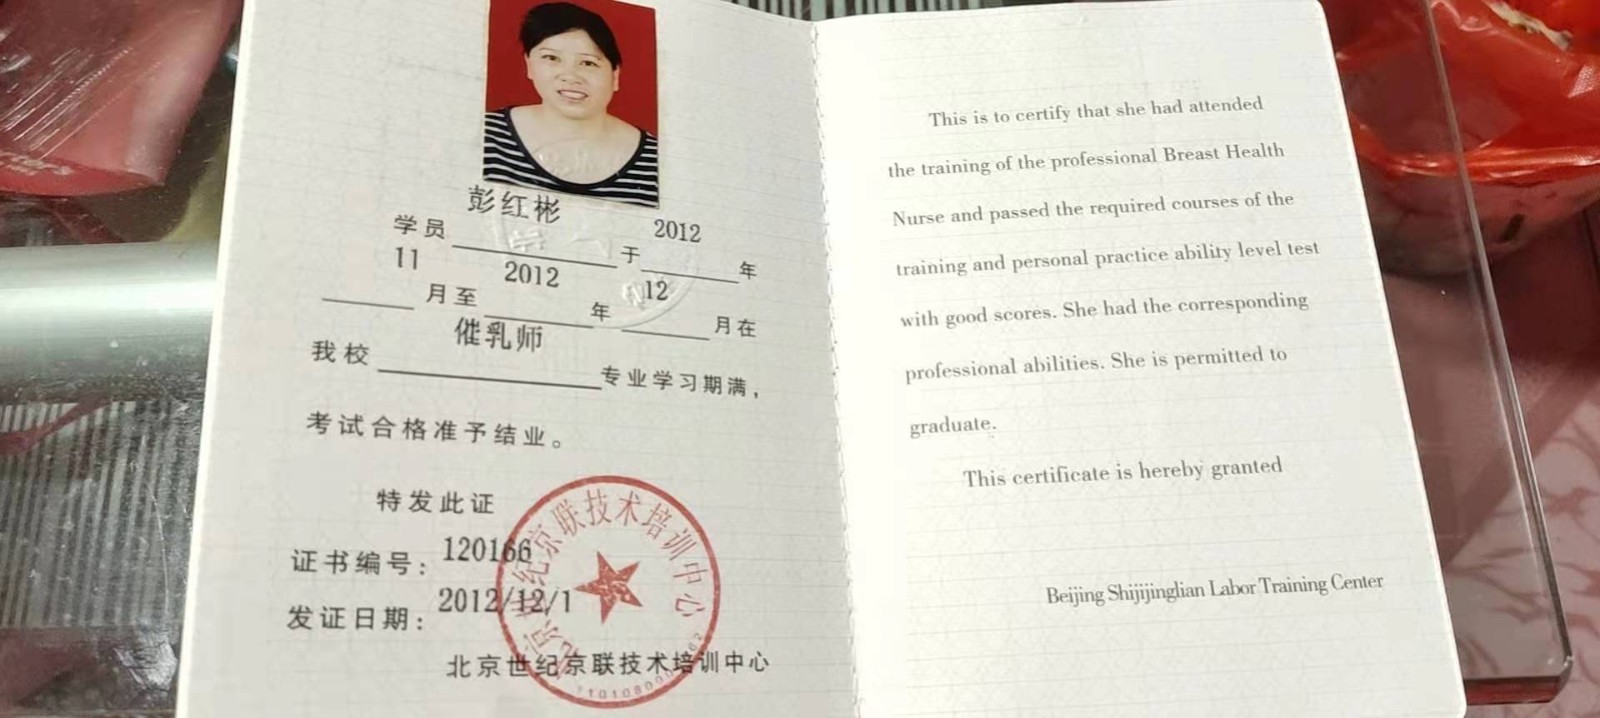 彭红彬
学员 于 2012 年
11 月至 2012 年 12 月在
我校 催乳师 专业学习期满，
考试合格准予结业。
特发此证
证书编号：120166
发证日期：2012/12/1
北京世纪京联技术培训中心
北京世纪京联技术培训中心
This is to certify that she had attended
the training of the professional Breast Health
Nurse and passed the required courses of the
training and personal practice ability level test
with good scores. She had the corresponding
professional abilities. She is permitted to
graduate.
This certificate is hereby granted
Beijing Shijijinglian Labor Training Center